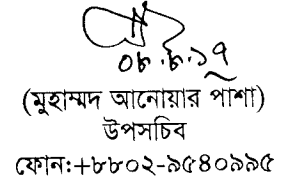 ০৮.৮.১৭
(মুহাম্মদ আনোয়ার পাশা)
উপসচিব
ফোন:+৮৮০২-৯৫৪০৯৯৫